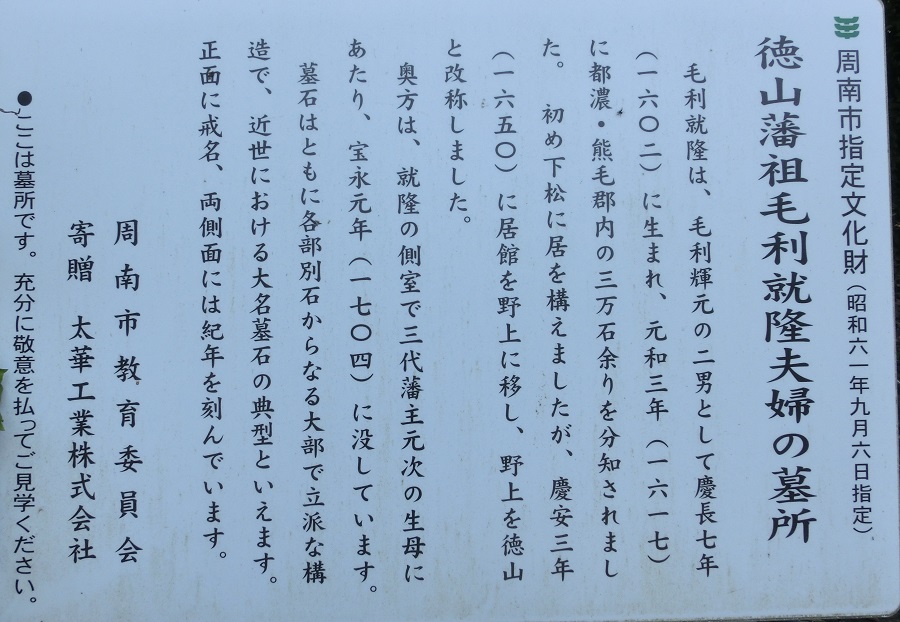 周南市指定文化財（昭和六一年九月六日指定）
徳山藩祖毛利就隆夫婦の墓所
毛利就隆は、毛利輝元の二男として慶長七年
（一六〇二）に生まれ、元和三年（一六一七）
に都濃・熊毛郡内の三万石余りを分知されまし
た。　初め下松に居を構えましたが、慶安三年
（一六五〇）に居館を野上に移し、野上を徳山
と改称しました。
奥方は、就隆の側室で三代藩主元次の生母に
あたり、宝永元年（一七〇四）に没しています。
墓石はともに各部別石からなる大部で立派な構
造で、近世における大名墓石の典型といえます。
正面に戒名、両側面には紀年を刻んでいます。
周南市教育委員会
寄贈　太華工業株式会社
●ここは墓所です。充分に敬意を払ってご見学ください。